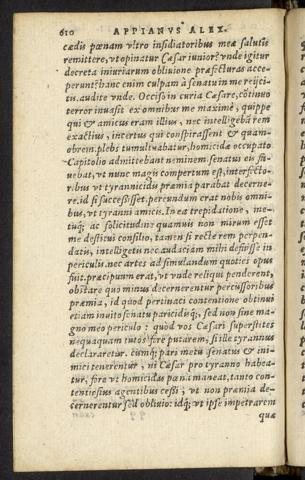 610 APPIANVS ALEX.
cædis pœnam vltro insidiatoribus meæ salutis
remittere, vt opinatur Cæsar iunior? vnde igitur
decreta iniuriarum obliuione præfecturas acce-
perunt? hanc enim culpam à senatu in me reijci-
tis. audite vnde. Occiso in curia Cæsare, cõtinuo
terror inuasit ex omnibus me maximè, quippe
qui & amicus eram illius, nec intelligebã rem
exactius, incertus qui conspirassent & quam-
obrem. plebs tumultuabatur, homicidæ occupato
Capitolio admittebant neminem. senatus eis fa-
uebat, vt nunc magis compertum est, interfecto-
ribus vt tyrannicidis præmia parabat decerne-
re. id si successisset. pereundum erat nobis omni-
bus, vt tyranni amicis. In ea trepidatione, me-
tuq́; ac solicitudine quamuis non mirum esset
me destitui consilio, tamen si rectè rem perpen-
datis, intelligetis nec audaciam mihi defuisse in
periculis. nec artes ad simulandum quoties opus
fuit. præcipuum erat, vt vnde reliqui penderent,
obstare quo minus decernerentur percussoribus
præmia, id quod pertinaci contentione obtinui
etiam inuito senatu paricidiq́;, sed non sine ma-
gno meo periculo: quòd vos Cæsari superstites
nequaquam tutos fore putarem, si ille tyrannus
declararetur. cumq́; pari metu senatus & ini-
mici tenerentur, ni Cæsar pro tyranno habea-
tur, fore vt homicidas pœna maneat, tanto con-
tentiosius agentibus cessi, vt non præmia de-
cernerentur sed obliuio: idq́; vt ipse impetrarem
quæ